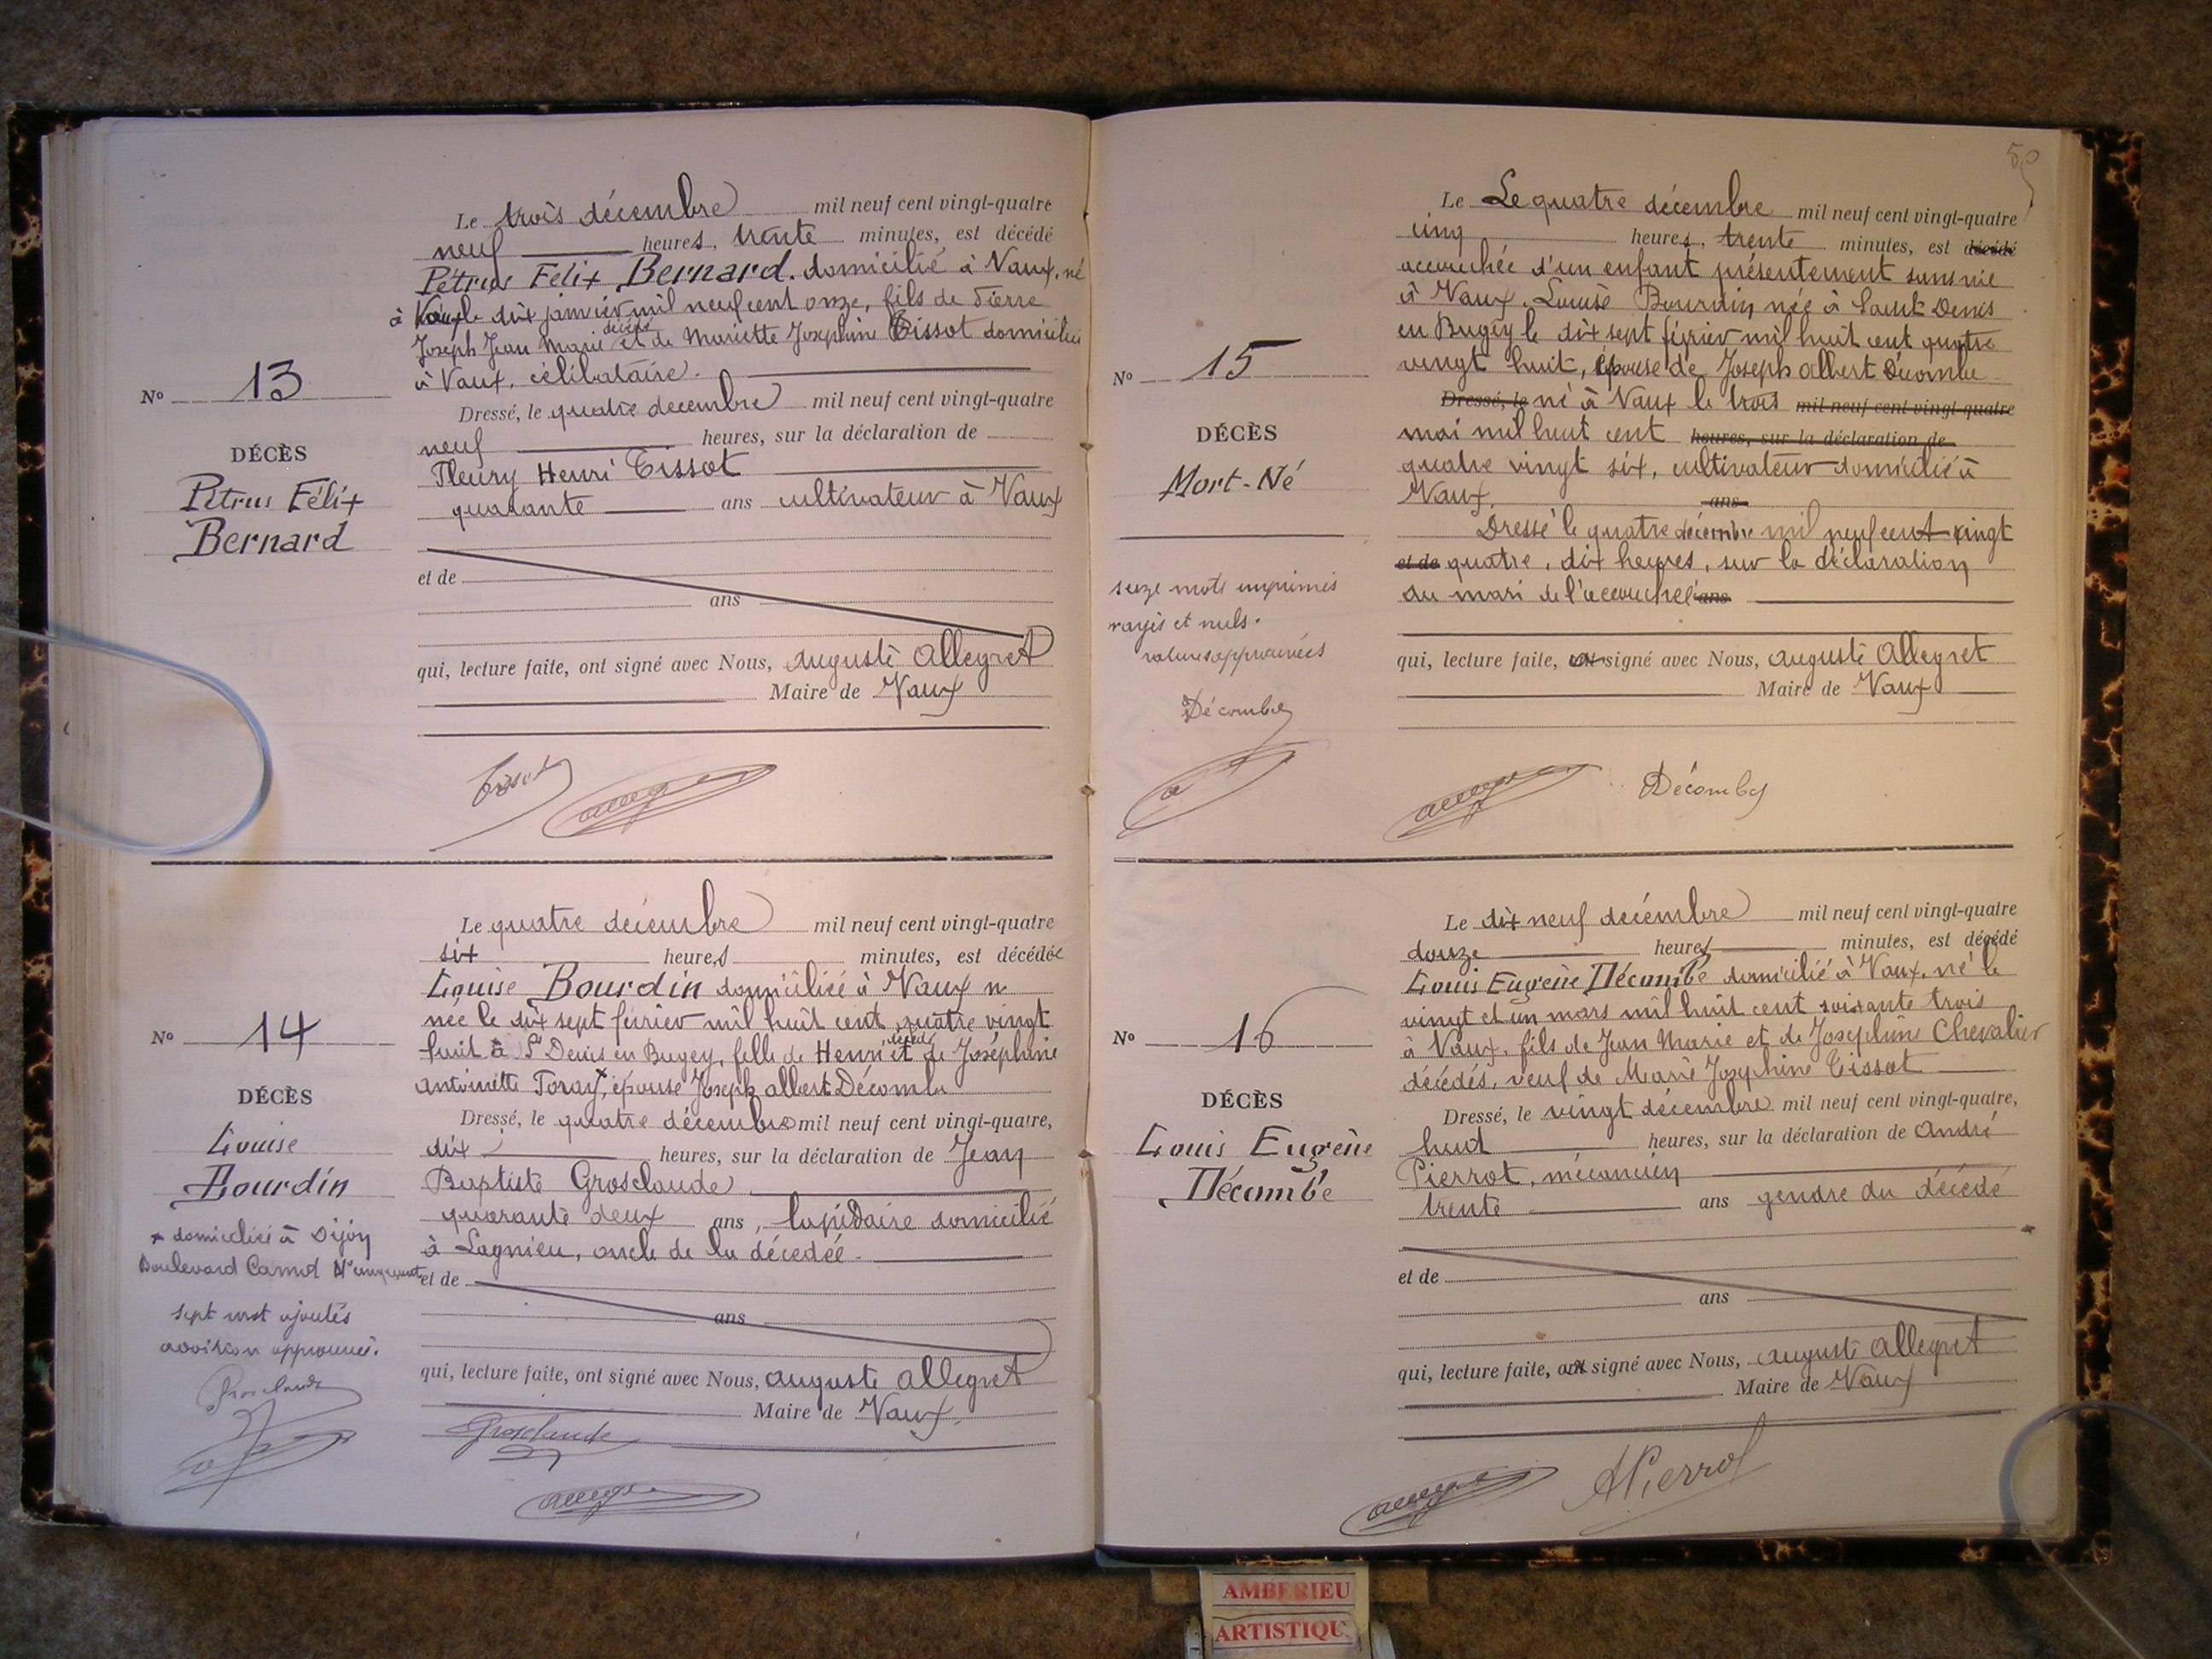 Le trois décembre mil neuf cent vingt-quatre
neuf heures, trente minutes, est décédé
Pétrus Félix Bernard. domicilié à Vaux, né
à Vaux le dix janvier mil neuf cent onze, fils de Pierre
Joseph Jean Marie décédé et de Mariette Joséphine Tissot domiciliée
à Vaux, célibataire.
No 13
DÉCÈS
Pétrus Félix
Bernard
Dressé, le quatre decembre mil neuf cent vingt-quatre
neuf heures, sur la déclaration de
Fleury Henri Tissot
quarante ans cultivateur à Vaux
et de
ans
qui, lecture faite, ont signé avec Nous, Auguste Allegret
Maire de Vaux
Tissot
Le quatre décembre mil neuf cent vingt-quatre
six heures minutes, est décédée
Louise Bourdin domiciliée à Vaux n
née le dix sept février mil huit cent quatre vingt
huit à St Denis en Bugey, fille de Henri décédé et de Joséphine
Antoinette Toray, épouse Joseph Albert Décombe
No 14
DÉCÈS
Louise
Bourdin
domiciliée à Dijon
Boulevard Carnot No
sept mot ajoutés
addition approuvée.
Grosclaude
Dressé, le quatre décembre mil neuf cent vingt-quatre,
dix heures, sur la déclaration de Jean
Baptiste Grosclaude
quarante deux ans, lapidaire domicilié
à Lagnieu, oncle de la décédée.
et de
ans
qui, lecture faite, ont signé avec Nous, Auguste Allegret
Maire de Vaux.
Grosclaude
Le Le quatre décembre mil neuf cent vingt-quatre
cinq heures, trente minutes, est décédé
accouchée d'un enfant présentement sans vie
à Vaux, Louise Bourdin née à Saint Denis
en Bugey le dix sept février mil huit cent quatre
vingt huit, épouse de Joseph Albert Décombe
No 15
DÉCÈS
Mort-Né
seize mots imprimés
rayés et nuls.
ratures approuvées
Décombe
Dressé, le né à Vaux le trois mil neuf cent vingt-quatre
mai mil huit cent heures, sur la déclaration de
quatre vingt six, cultivateur domicilié à
Vaux. ans
Dressé le quatre décembre mil neuf cent vingt
et de quatre, dix heures, sur la déclaration
du mari de l'accouchée ans
qui, lecture faite, ont signé avec Nous, Auguste Allegret
Maire de Vaux
Décombe
Le dix neuf decémbre mil neuf cent vingt-quatre
douze heures minutes, est décédé
Louis Eugène Décombe domicilié à Vaux, né le
vingt et un mars mil huit cent soixante trois
à Vaux, fils de Jean Marie et de Joséphine Chevalier
décédés, veuf de Marie Joséphine Tissot
No 16
DÉCÈS
Louis Eugène
Décombe
Dressé, le vingt décembre mil neuf cent vingt-quatre,
huit heures, sur la déclaration de André
Pierrot, mécanicien
trente ans gendre du décédé
et de
ans
qui, lecture faite, ont signé avec Nous, Auguste Allegret
Maire de Vaux
APierrot
AMBERIEU
ARTISTIQU